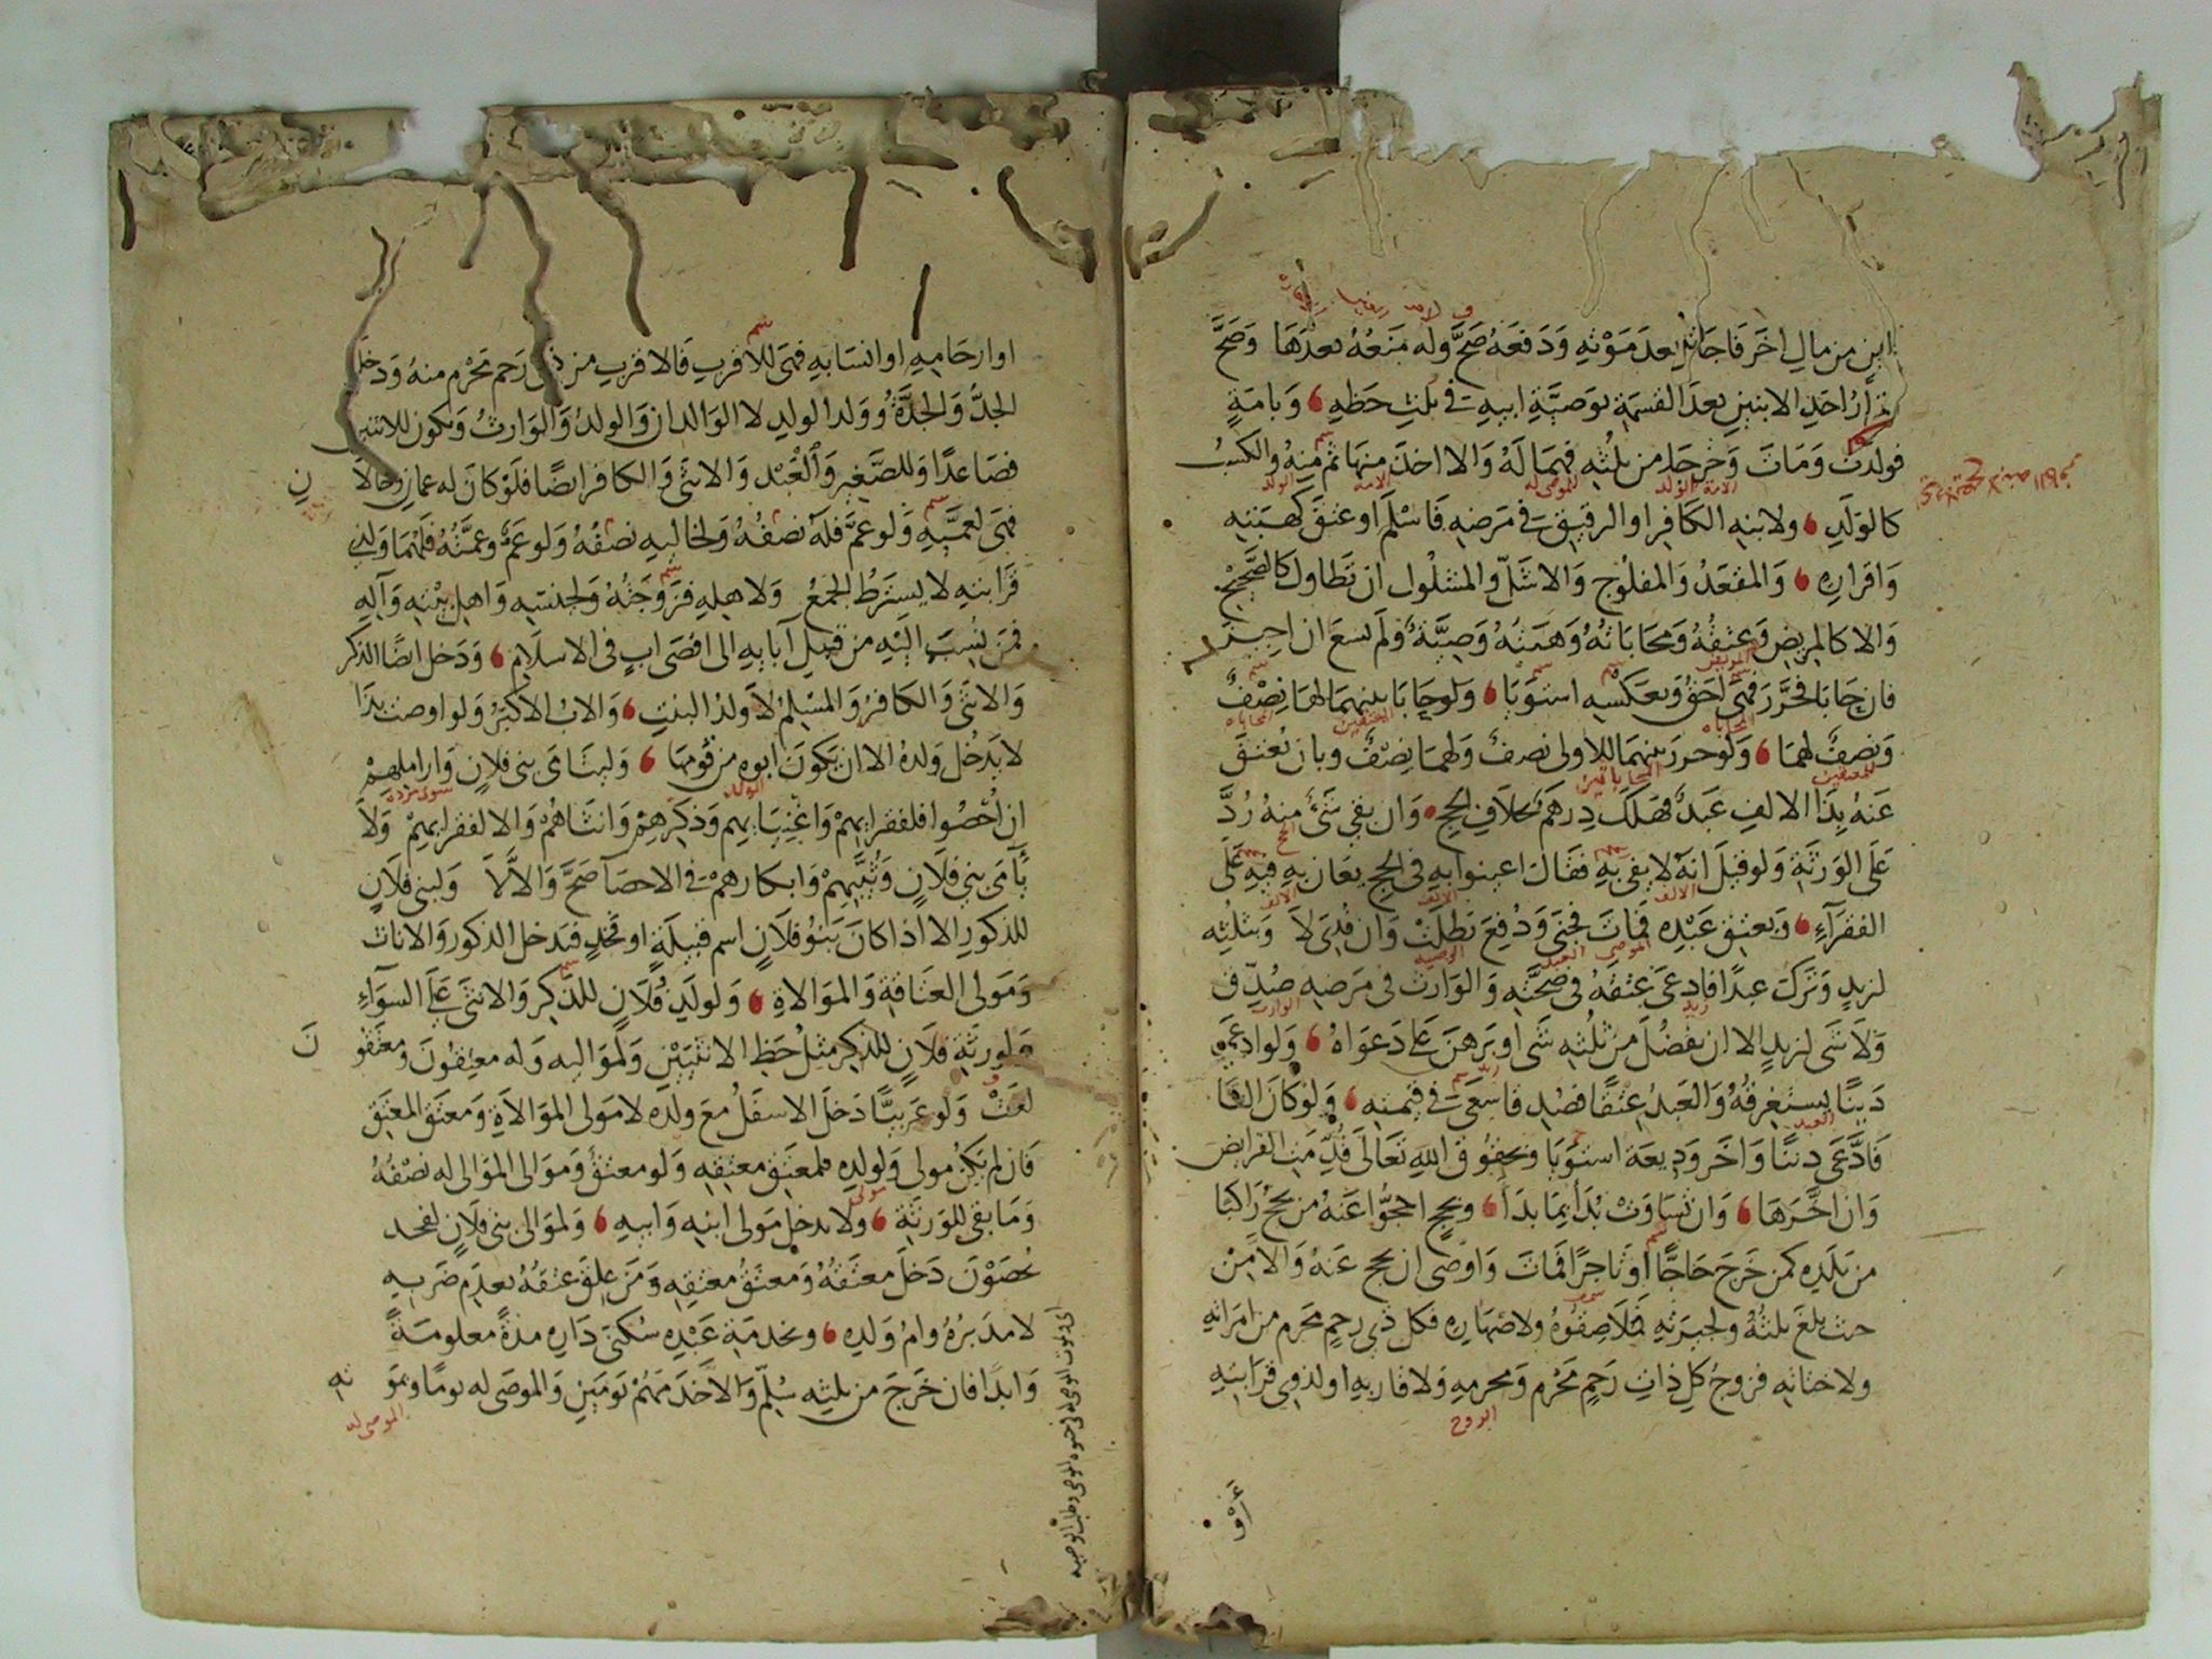 ابن من مال اخر فاجاز بعد موته ودفعه صح وله منعه بعدها وصح
اقرار احد الابنين بعد القسمة بوصية ابيه في ثلث حظه وبامة
فولدت ومات وخرجا من ثلثه فهما له والا اخذ منها ثم منه والكسب
كالولد ولابنه الكافر او الرقيق في مرضه فاسلم او عتق كهبته
واقراره والمقعد والمفلوج والاشل والمسلول ان تطاول كالصحيح
والا كالمريض وعتقه ومحاباته وهبته وصية ولم يسع ان اجيز
فان حابا فحرر فهى احق وبعكسه استويا ولو حابا بينهما لها نصف
ونصف لهما ولو حرر بينهما للاولى نصف ولهما نصف وبان يعتق
عنه بذا الالف عبد فهلك درهم بخلاف الحج وان بقي شئ منه رد
على الورثة ولو قيل انه لا يفى به فقال اعينوا به في الحج يعان به فيه على
الفقرآء وبعتق عبده فمات فجنى ودفع بطلت وان فدى لا وبثلثه
لزيد وترك عبدا فادعى عتقه في صحته والوارث في مرضه صدق
ولا شى لزيد الا ان يفضل من ثلثه شى او برهن على دعواه ولو ادعى
دينا يستغرقه والعبد عتقا فصدق سعى في قيمته ولو كان الفا
فادعى دينا واخر وديعة استويا وبحقوق الله تعالى قدمت الفرايض
وان اخرها وان تساوت بدا بما بدا وبحج احجوا عنه من يحج راكبا
من بلده كمن خرج حاجا او تاجرا فمات واوصى ان يحج عنه والا من
حيث بلغ ثلثه ولجيرته فملاصقوه ولاصهاره فكل ذي رحم محرم من امراته
ولاختانه فزوج كل ذات رحم محرم ومحرمه ولاقاربه او لذوي قرابته
الزوج
او ار
او ارحامه او انسابه فهى للاقرب فالاقرب من ذى رحم محرم منه ودخل
الجد والجدة وولد الولد لا الوالدان والولد والوارث ويكون للاثنين
فصاعدا وللصغير والعبد والانثى والكافر ايضا فلو كان له عمان وخالان
فهى لعميه ولو عم فله نصفه ولخاليه نصفه ولو عم وعمته فلهما ولذي
قرابته لا يشترط الجمع ولاهله فزوجته ولجنسه واهل بيته وآله
فمن ينسب اليه من قبل آبايه الى اقصى اب في الاسلام ودخل ايضا الذكر
والانثى والكافر والمسلم لا ولد البنت والاب الاكبر ولو اوصت بذا
لا يدخل ولده الا ان يكون ابوه من قومها وليتامى بنى فلان واراملهم
ان احصوا فلفقرايهم واغنيايهم وذكرهم وانثاهم والا لفقرايهم ولا
يامى بنى فلان وثيبهم وابكارهم في الاحصآ صح والا لا ولبنى فلان
للذكور الا اذا كان بنو فلان اسم قبيلة او فخذ فيدخل الذكور والاناث
ومولى العتاقة والموالاة ولولد فلان للذكر والانثى على السوآء
ولورثة فلان للذكر مثل حظ الانثيين ولمواليه وله معتقون ومعتقون
لغت ولو عربيا دخل الاسفل مع ولده لا مولى الموالاة ومعتق المعتق
فان لم يكن مولى ولولده فلمعتق معتقه ولو معتق وموالى الموالى له نصفه
وما بقى للورثة ولا يدخل مولى ابنه وابيه ولموالى بنى فلان لفخذ
يحصون دخل معتقه ومعتق معتقه ومن علق عتقه بعدم ضربه
لا مدبره وام ولده وبخدمة عبده سكنى داره مدة معلومة
وابدا فان خرج من ثلثه سلم والا خدمهم يومين والموصى له يوما وبموته
الموصى له